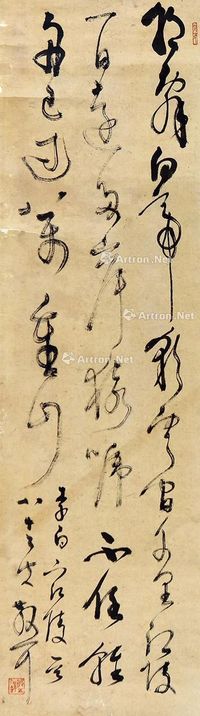 朝辭白帝彩雲間千里江陵
一日還兩岸猿聲啼不住輕
舟已過萬重山
李白江陵
八十叟散耳
Artron.Net
Artron.Net
Artron.Net
Artron.Net